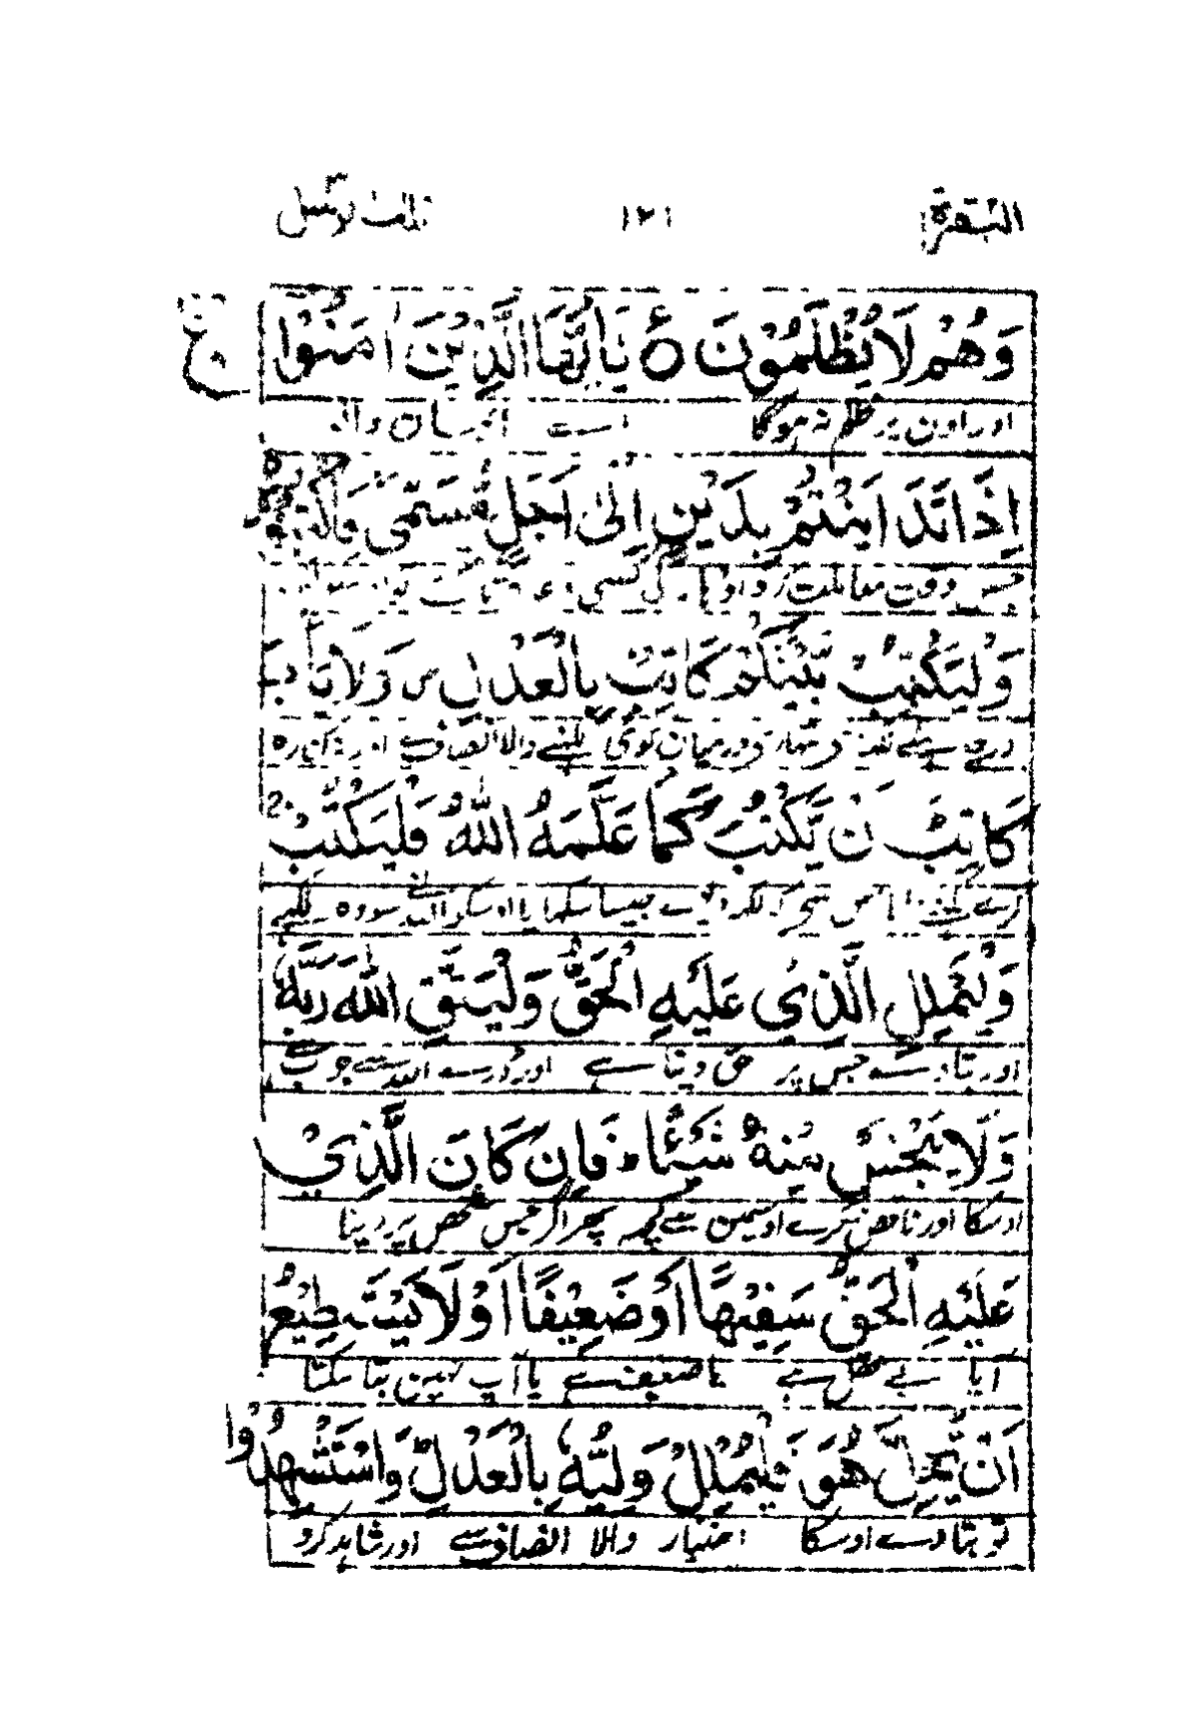 البقرة ١٢١ تلك الرسل ٣
وَهُمْ لَا يُظْلَمُونَ ۝ ع يَا أَيُّهَا الَّذِيْنَ اٰمَنُوْٓا
اور اون پر ظلم نہ ہوگا اے ایمان والو
إِذَا تَدَايَنْتُمْ بِدَيْنٍ إِلٰى أَجَلٍ مُّسَمًّى فَاكْتُبُوْهُ
جس وقت معاملت کرو اودہار کی کسی
وَلْيَكْتُبْ بَّيْنَكُمْ كَاتِبٌ بِالْعَدْلِ ص وَلَا يَأْبَ
تمہارے درمیان کوئی لکہنے والا انصاف سے اور نہ کنارہ
كَاتِبٌ أَنْ يَّكْتُبَ كَمَا عَلَّمَهُ اللّٰهُ فَلْيَكْتُبْ ج
کرے لکہنے والا اس سے کہ لکہدیوے جیسا سکہایا اوسکو اللہ نے سو وہ لکہے
وَلْيُمْلِلِ الَّذِيْ عَلَيْهِ الْحَقُّ وَلْيَتَّقِ اللّٰهَ رَبَّهٗ
اور بتا دے جس پر حق دینا ہے اور ڈرے اللہ سے جو رب ہے
وَلَا يَبْخَسْ مِنْهُ شَيْئًا ط فَإِنْ كَانَ الَّذِيْ
اوسکا اور ناقص نکرے اوسمین سے کچہہ پہر اگر جس شخص پر دینا
عَلَيْهِ الْحَقُّ سَفِيْهًا أَوْ ضَعِيْفًا أَوْ لَا يَسْتَطِيْعُ
آیا بے عقل ہے یا ضعیف ہے یا آپ نہین بتا سکتا
أَنْ يُّمِلَّ هُوَ فَلْيُمْلِلْ وَلِيُّهٗ بِالْعَدْلِ ط وَاسْتَشْهِدُوْا
تو بتا دے اوسکا اختیار والا انصاف سے اور شاہد کرو